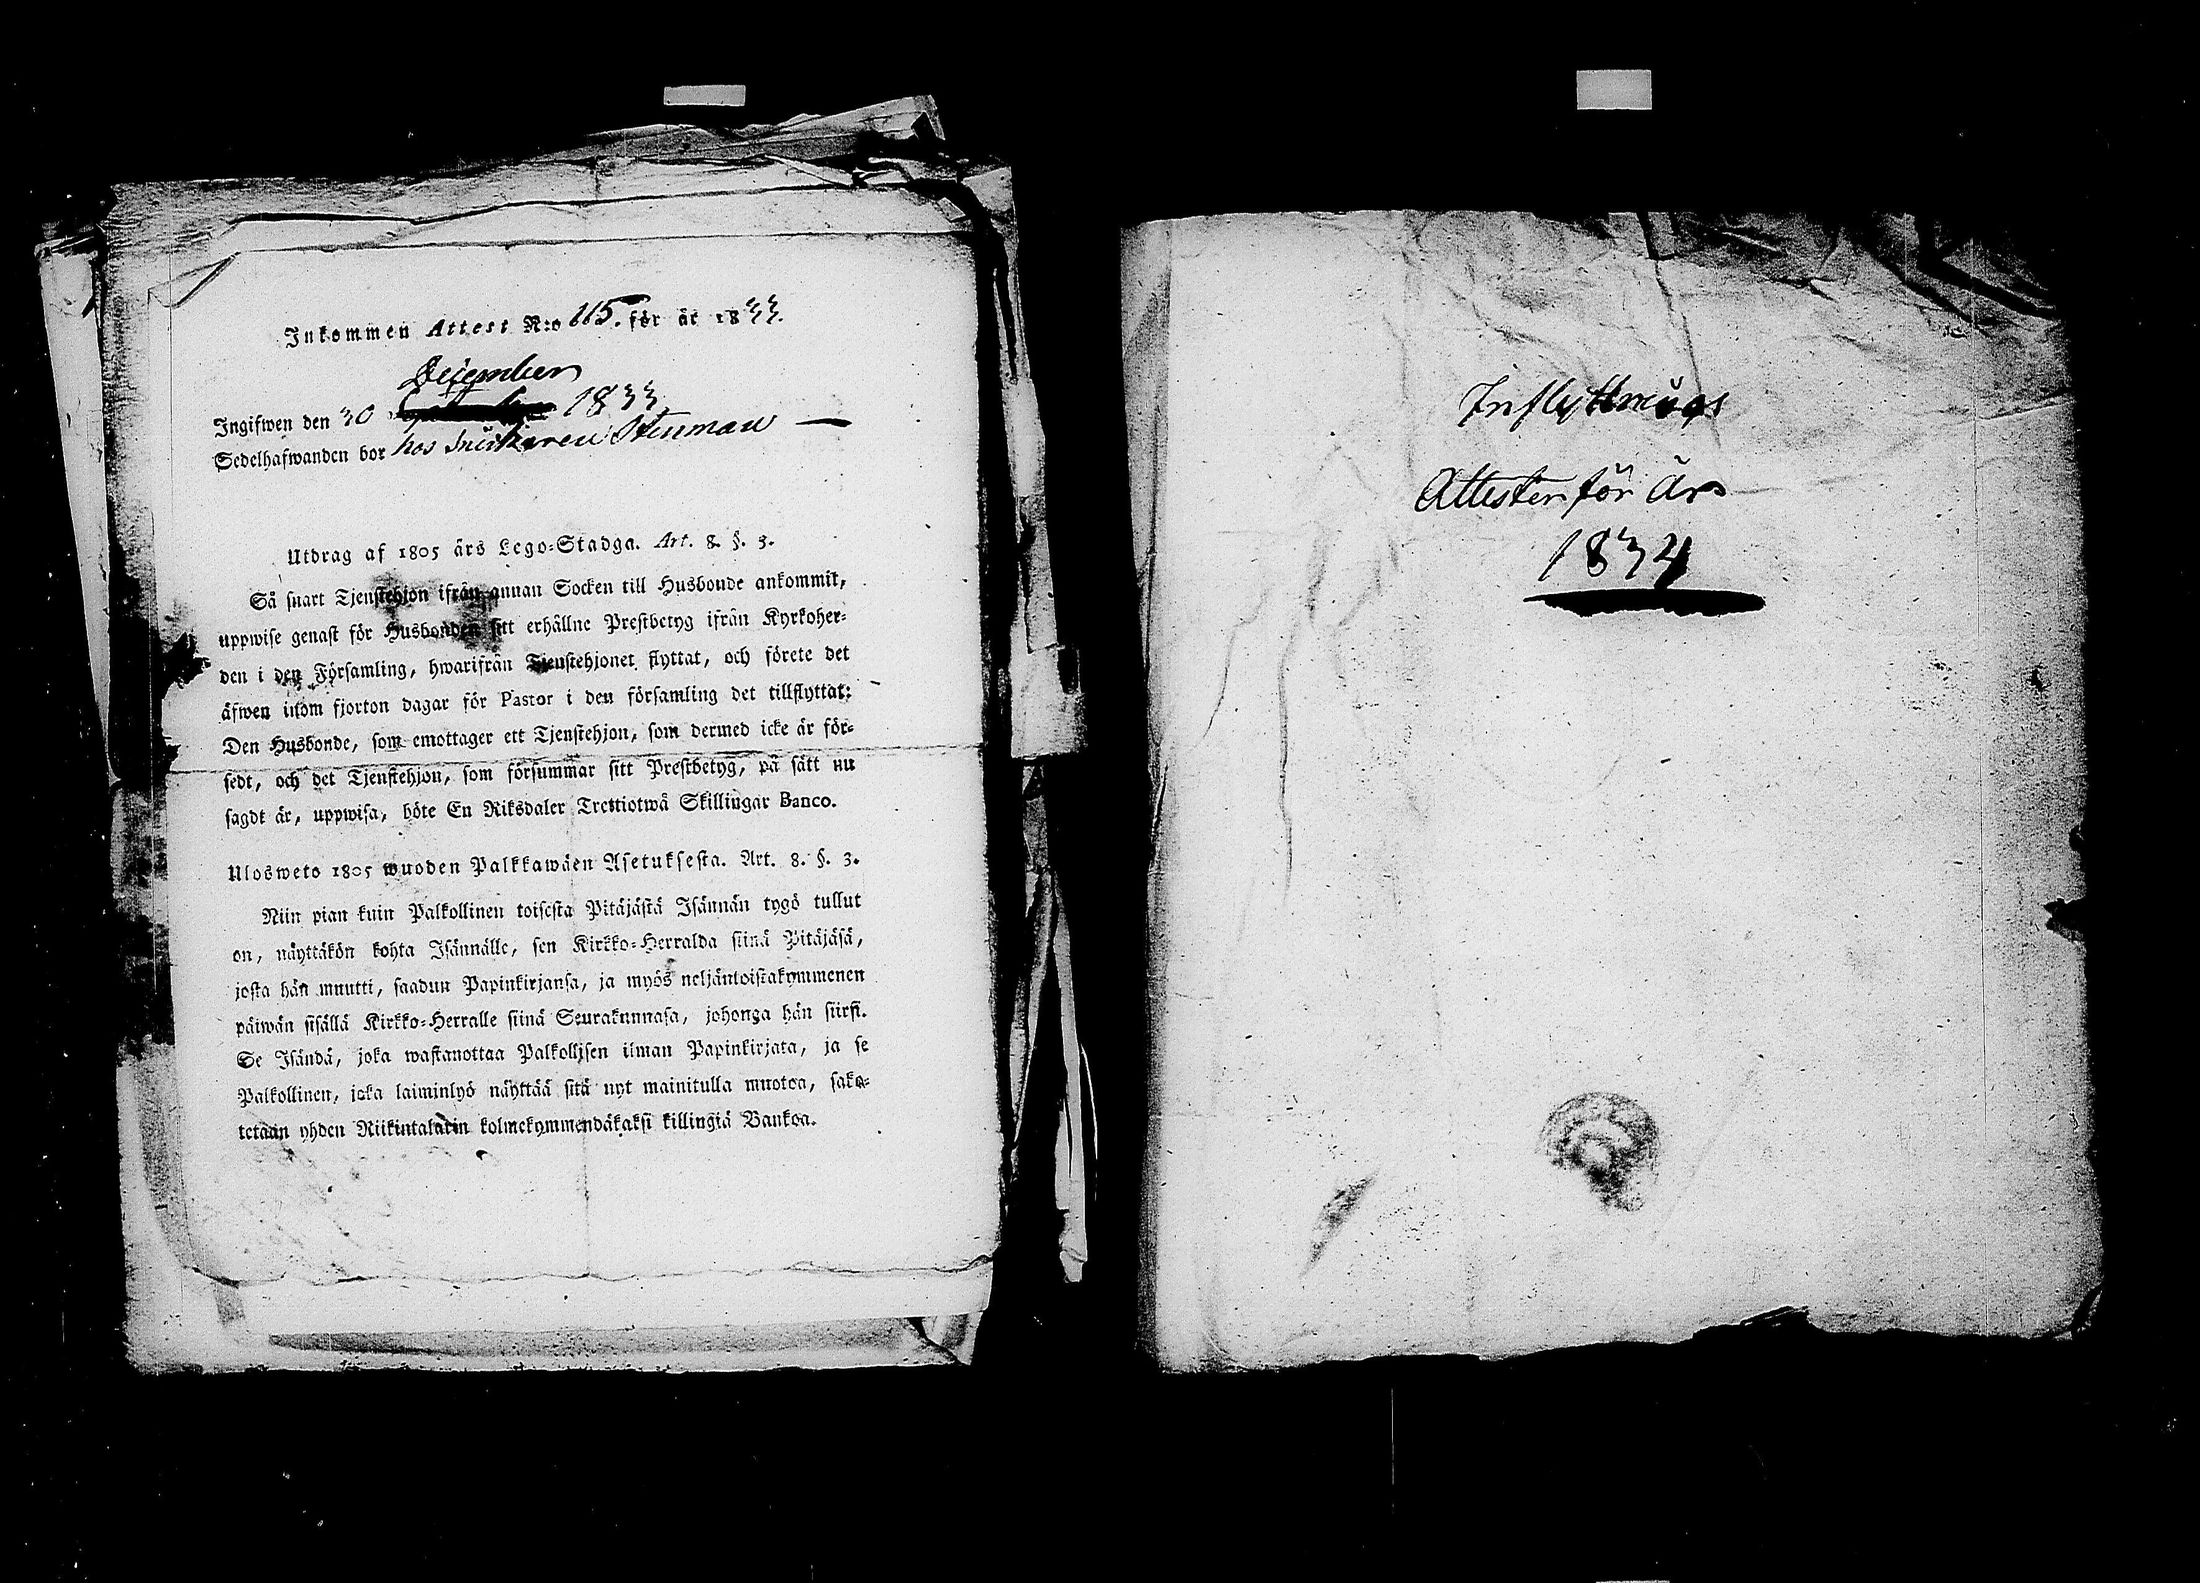 Inkommen Attest N:o 115. för år 1833.
December
Ingifwen den 30 1833
Sedelhafwanden bor hos Snickaren Stenman —
Utdrag af 1805 års Lego-Stadga. Art. 8. §. 3.
Så snart Tjenstehjon ifrån annan Socken till Husbonde ankommit,
uppwise genast för Husbonden sitt erhållne Prestbetyg ifrån Kyrkoher-
den i den Församling, hwarifrån Tjenstehjonet flyttat, och förete det
äfwen inom fjorton dagar för Pastor i den församling det tillflyttat:
Den Husbonde, som emottager ett Tjenstehjon, som dermed icke är för-
sedt, och det Tjenstehjon, som försummar sitt Prestbetyg, på sätt nu
sagdt är, uppwisa, böte En Riksdaler Trettiotwå Skillingar Banco.
Ulosweto 1805 wuoden Palkkawäen Asetuksesta. Art. 8. §. 3.
Niin pian kuin Palkollinen toisesta Pitäjästä Isännän tygö tullut
on, näyttäkön kohta Isännälle, sen Kirkko-Herralda siinä Pitäjäsä,
josta hän muutti, saadun Papinkirjansa, ja myös neljäntoistakymmenen
päiwän sisällä Kirkko-Herralle siinä Seurakunnasa, johonga hän siirsi.
Se Isändä, joka wastanottaa Palkollisen ilman Papinkirjata, ja se
Palkollinen, joka laiminlyö näyttää sitä nyt mainitulla muotoa, saka-
tetaan yhden Riikintalarin kolmekymmendäkaksi killingiä Bankoa.
Inflyttnings
Attester för års
1834